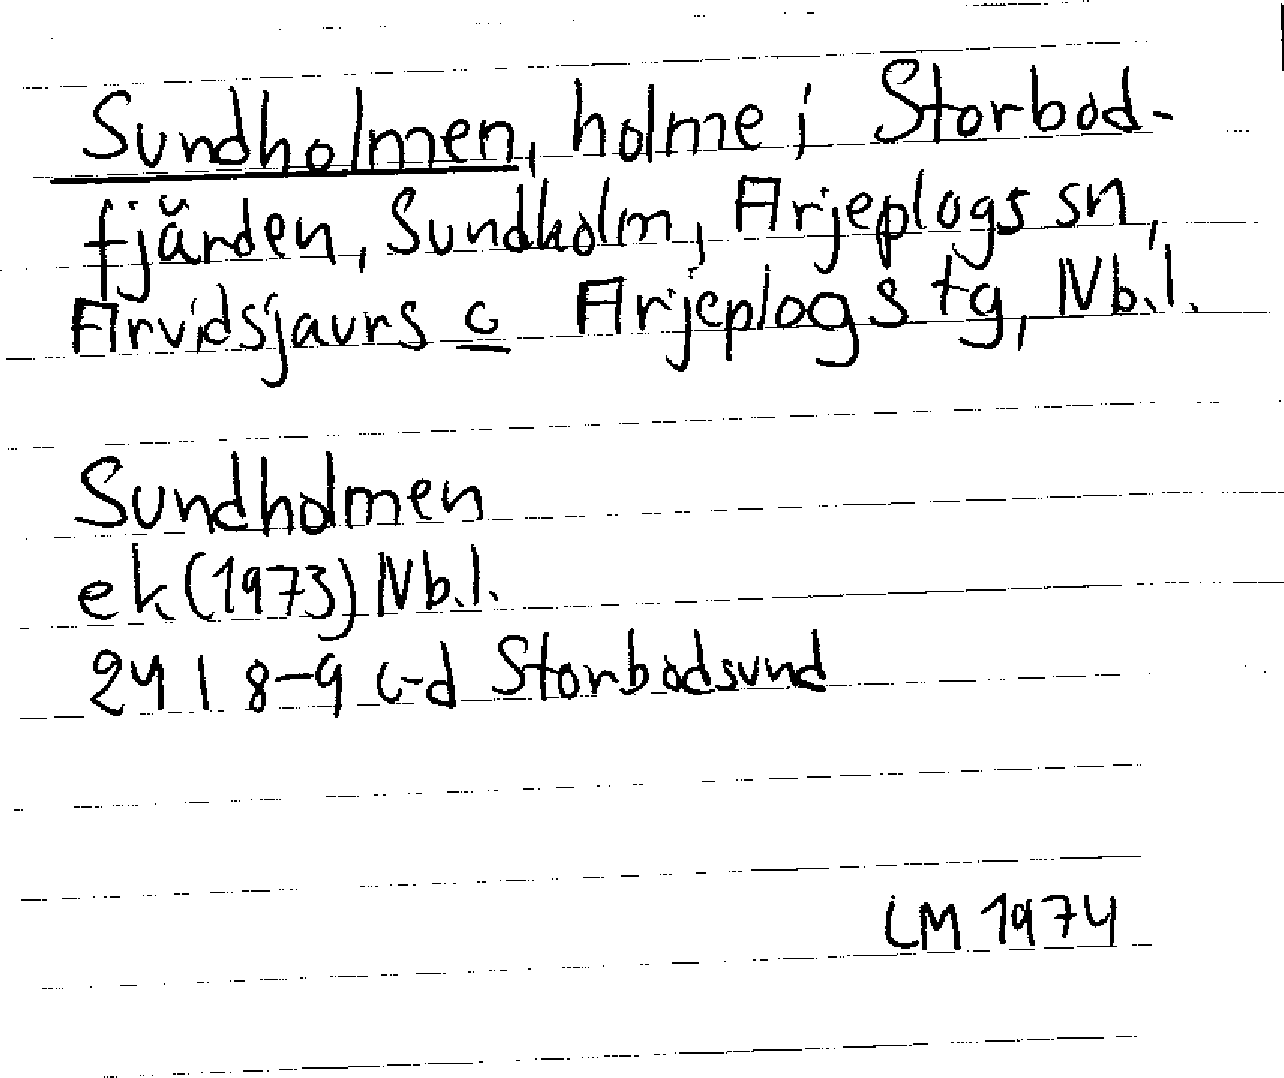 Sundholmen, holme i Storbod-
fjärden, Sundholm, Arjeplogs sn,
Arvidsjaurs o Arjeplogs tg, Nb.l.
Sundholmen
ek (1973) Nb.l.
24 I 8-9 c-d Storbodsund
LM 1974